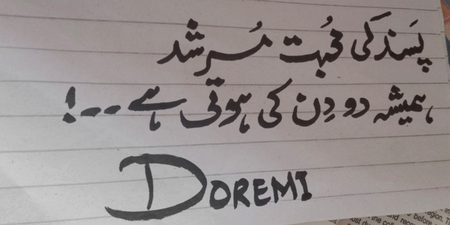 پَسند کی محبت مُرشد
ہمیشہ دو دِن کی ہوتی ہے ---!
DOREMI